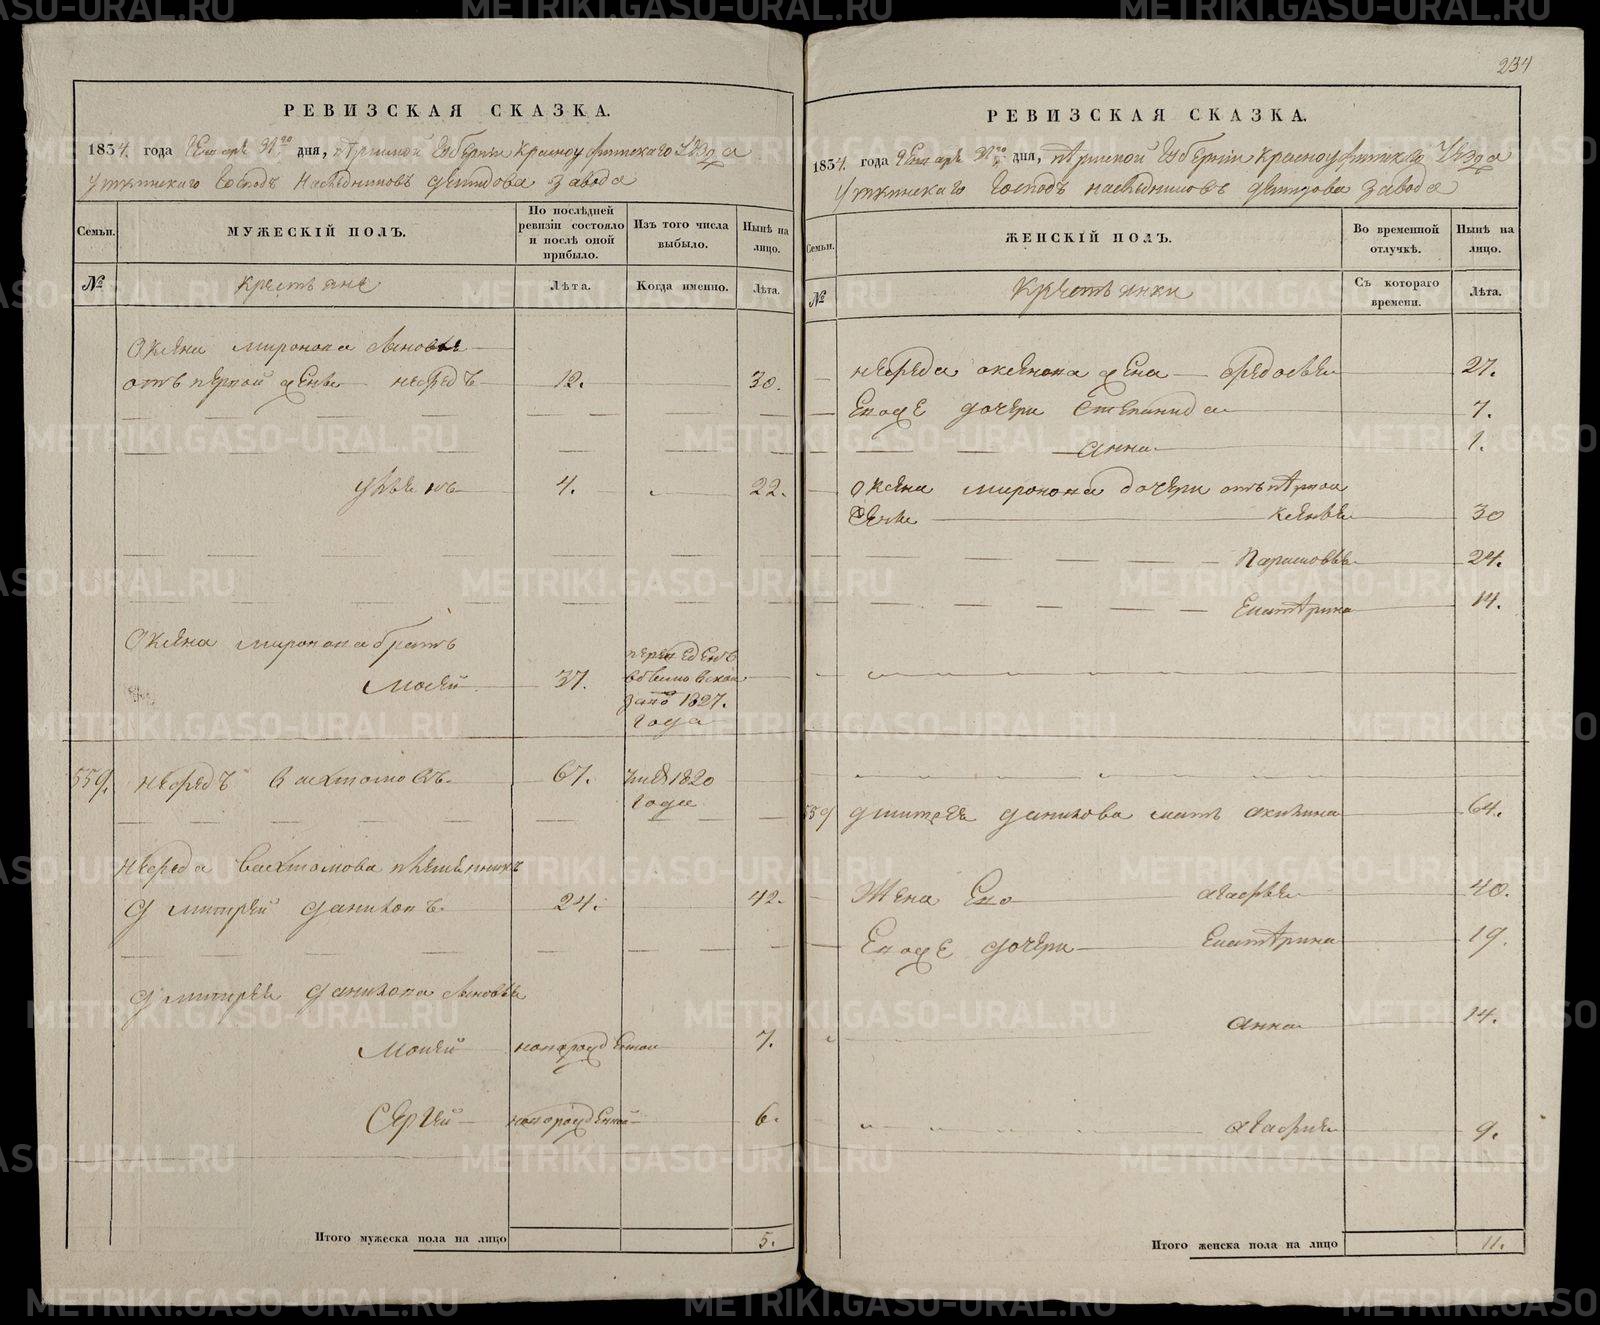 234
РЕВИЗСКАЯ СКАЗКА.
1834. года дня, Пермской Губернiи Красноуфимскаго Уѣзда
Уткинскаго Господъ Наслѣдниковъ Демидова завода
Семьи.
МУЖЕСКIЙ ПОЛЪ.
По послѣдней ревизiи состояло и послѣ оной прибыло.
Изъ того числа выбыло.
Нынѣ на лицо.
№
Крестьяне
Лѣта.
Когда именно.
Лѣта.
Миронова сыновья
отъ первой жены Нефедъ 12. 30.
4. 22.
Миронова братъ
Мосей 37. 1827. года
559. Нефедъ 67. 1820 года
Нефеда племянникъ
Дмитрей Даниловъ 24. 42.
Дмитрея Данилова сыновья
Мокей новорожденной 7.
Сергей новорожденной 6.
Итого мужеска пола на лицо 5.
РЕВИЗСКАЯ СКАЗКА.
1834. года дня, Пермской Губернiи Красноуфимскаго Уѣзда
Уткинскаго Господъ Наслѣдниковъ Демидова завода
Семьи.
ЖЕНСКIЙ ПОЛЪ.
Во временной отлучкѣ.
Нынѣ на лицо.
№
Крестьянки
Съ котораго времени.
Лѣта.
Нефеда жена Федосья 27.
Его же дочери Степанида 7.
Анна 1.
Миронова дочери отъ первой
жены 30
Парасковья 24.
Екатерина 14.
559 Дмитрея Данилова мать Акилина 64.
Жена Его Агафья 40.
Его же дочери Екатерина 19.
Анна 14.
Агафия 9.
Итого женска пола на лицо 11.
METRIKI.GASO-URAL.RU